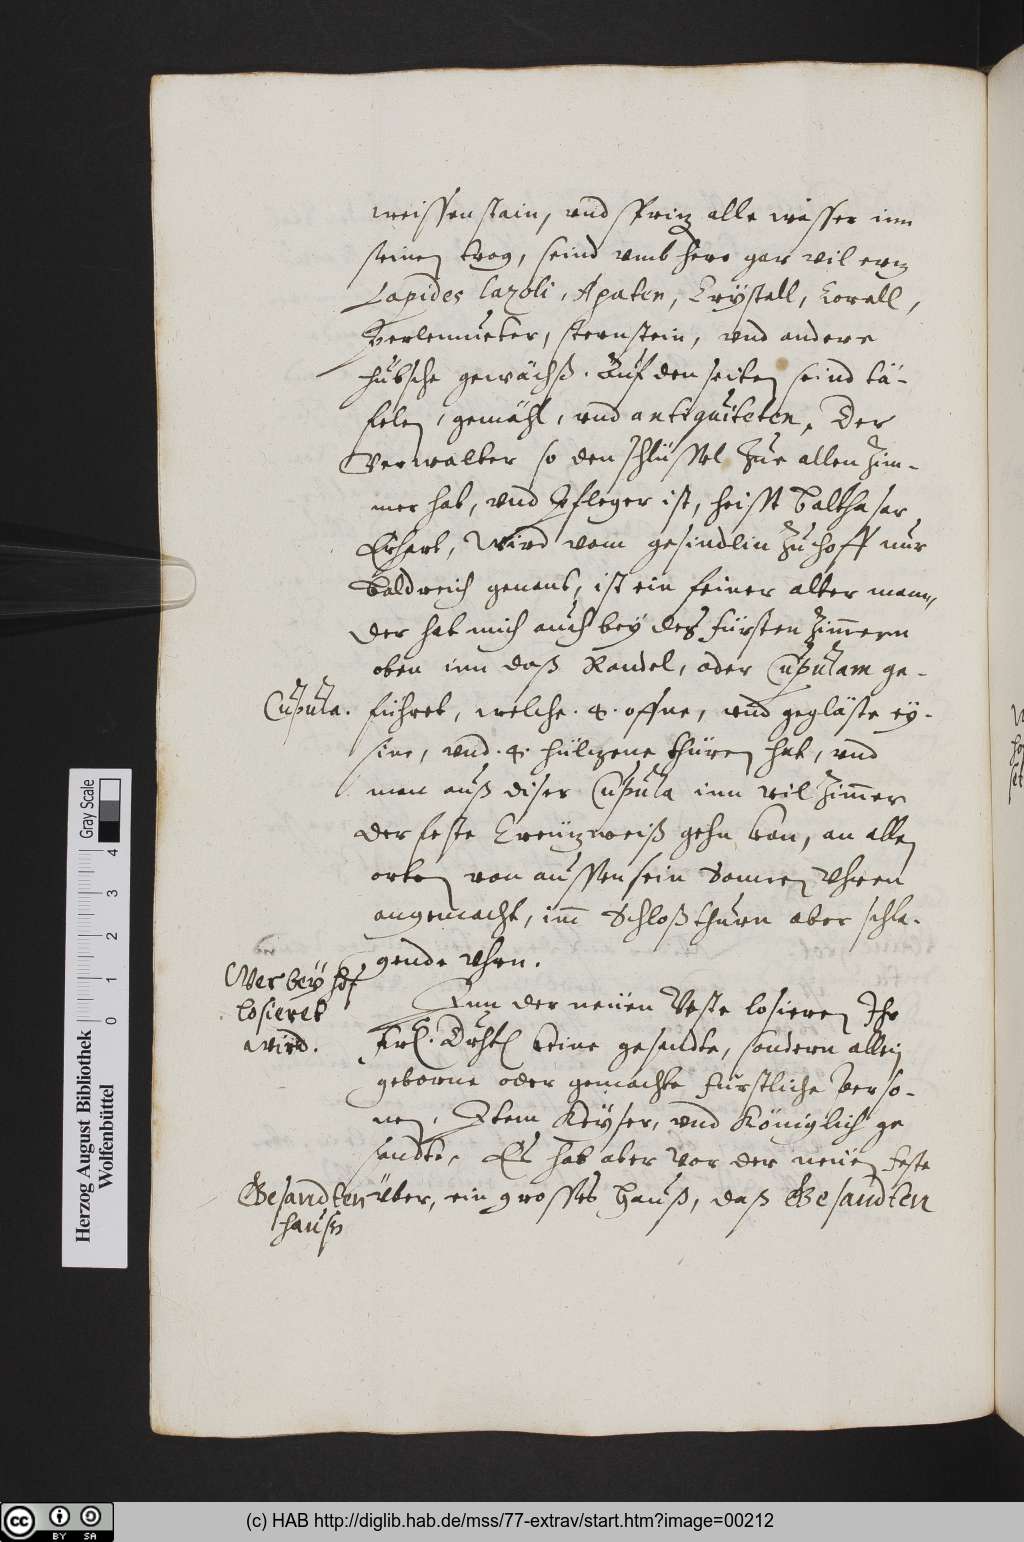 weissen stain, vnd sprinz alle wasser inn
steinen trog, seind vmb hero gar vil erz
Lapides lazoli, Agaten, Crÿstall, Corall,
Perlemueter, sternstein, vnd andere
hübsche gewächß. Auf den seiten seind tä-
felen, gemähl, vnd antiquiteten, Der
Verwalter so den schlüssel zue allen zim-
mer hab, vnd Pfleger ist, heisst Balthasar
wird vom gesindlin zu hoff nur
Baldreich genant, ist ein feiner alter mann,
der hat mich auch beÿ des fürsten zimmern
oben inn daß Randel, oder Cupulam ge-
Cupula.
führet, welche .8. offne, vnd geglaste eÿ-
sine, vnd .8. hülzene thüren hat, vnd
man auß diser Cupula inn vil zimmer
der feste Creüzweiß gehn kan, an allen
orten von aussen sein Sonnen Vhren
angemacht, im Schloßthurn aber schla-
gende Vhrn.
Wer beÿ hof
losieret
wird.
Inn der neüen Veste losieren Ihr
Frl. Drhtl keine gesandte, sondern allein
geborne oder gemachte fürstliche Perso-
nen, Item Keÿser, vnd Königlich ge
sandte, Es hat aber vor der neüen feste
Gesandten
hauß
über, ein grosses hauß, daß Gesandten
Herzog August Bibliothek
Wolfenbüttel
0 1 2 3 4
Gray Scale
cc BY SA
(c) HAB http://diglib.hab.de/mss/77-extrav/start.htm?image=00212